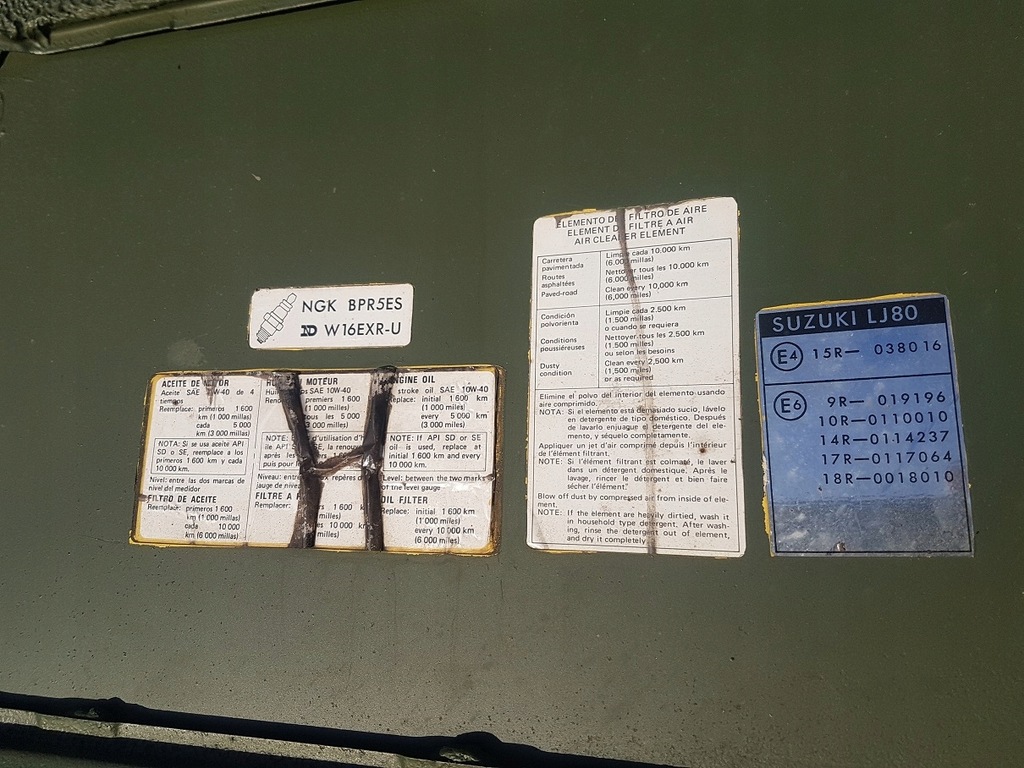 NGK BPR5ES
ND W16EXR-U
ACEITE DE MOTOR
Aceite SAE 10W-40 de 4
tiempos
Reemplace: primeros 1 600
km (1 000 millas)
cada 5 000
km (3 000 millas)
NOTA: Si se usa aceite API
SD o SE, reemplace a los
primeros 1 600 km y cada
10 000 km.
Nivel: entre las dos marcas de
nivel del medidor
FILTRO DE ACEITE
Reemplace: primeros 1 600
km (1 000 millas)
cada 10 000
km (6 000 millas)
MOTEUR
SAE 10W-40
premiers 1 600
(1 000 milles)
tous les 5 000
(3 000 milles)
NOTE: d'utilisation d'
ile API
après les 1 600
puis pour
Niveau: entre repères de
jauge de
FILTRE A
1 600
10 000 km
ENGINE OIL
stroke oil SAE 10W-40
initial 1 600 km
(1 000 miles)
every 5 000 km
(3 000 miles)
NOTE: If API SD or SE
oil is used, replace at
initial 1 600 km and every
10 000 km.
Level: between the two marks
of the level gauge
OIL FILTER
Replace: initial 1 600 km
(1 000 miles)
every 10 000 km
(6 000 miles)
ELEMENTO DE FILTRO DE AIRE
ELEMENT DE FILTRE A AIR
AIR CLEANER ELEMENT
Carretera
pavimentada
Routes
asphaltées
Paved-road
Limpie cada 10.000 km
(6.000 millas)
Nettoyer tous les 10.000 km
(6.000 milles)
Clean every 10,000 km
(6,000 miles)
Condición
polvorienta
Conditions
poussiéreuses
Dusty
condition
Limpie cada 2.500 km
(1.500 millas)
o cuando se requiera
Nettoyer tous les 2.500 km
(1.500 milles)
ou selon les besoins
Clean every 2,500 km
(1,500 miles)
or as required
Elimine el polvo del interior del elemento usando
aire comprimido.
NOTA: Si el elemento está demasiado sucio, lávelo
en detergente de tipo doméstico. Después
de lavarlo enjuague el detergente del ele-
mento, y séquelo completamente.
Appliquer un jet d'air comprimé depuis l'intérieur
de l'élément filtrant.
NOTE: Si l'élément filtrant est colmaté, le laver
dans un détergent domestique. Après le
lavage, rincer le détergent et bien faire
sécher l'élément.
Blow off dust by compressed air from inside of ele-
ment.
NOTE: If the element are heavily dirtied, wash it
in household type detergent. After wash-
ing, rinse the detergent out of element,
and dry it completely.
SUZUKI LJ80
E4 15R— 038016
E6 9R— 019196
10R—0110010
14R—0114237
17R—0117064
18R—0018010